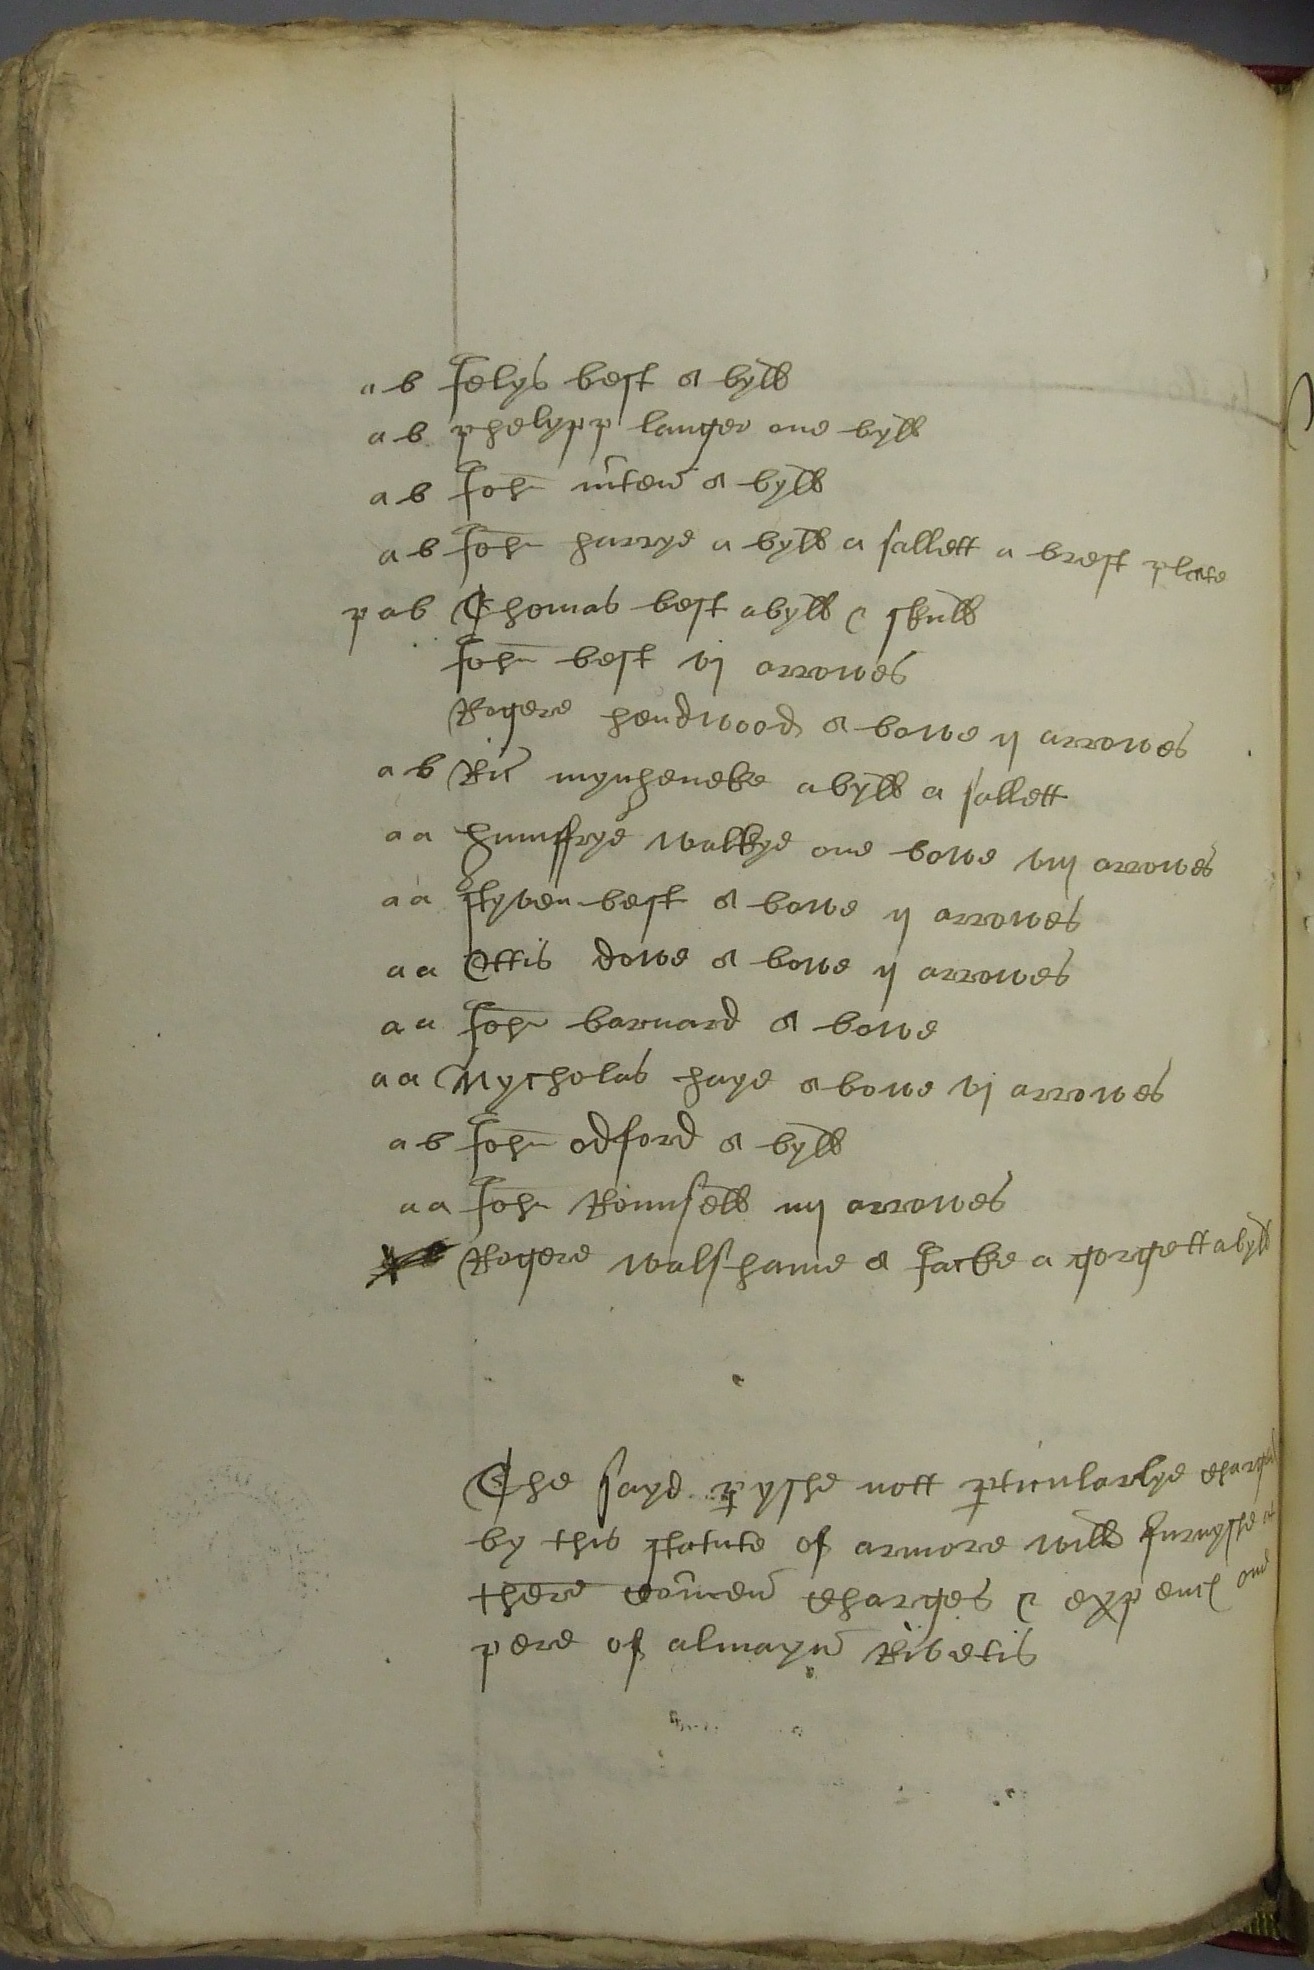 a b Jelys best a byll
a b phelypp langer one byll
a b John a byll
a b John harrye a byll a sallett a brest plate
p a b Thomas best a byll & skull
John best vj arrowes
Rogere hendwood a bowe ij arrowes
a b Ric mynheneke a byll a sallett
a a humffrye walkye one bowe viij arrowes
a a styven best a bowe ij arrowes
a a Ottis dowe a bowe ij arrowes
a a John barnard a bowe
a a Nycholas haye a bowe vj arrowes
a b John odford a byll
a a John Rounsell iiij arrowes
Rogere walshame a Jacke a gorgett a byll
The sayd pyshe nott pticularlye charged
by this statute of armore will furnyshe at
there comen charges & expenc one
pere of almayn Rivetis